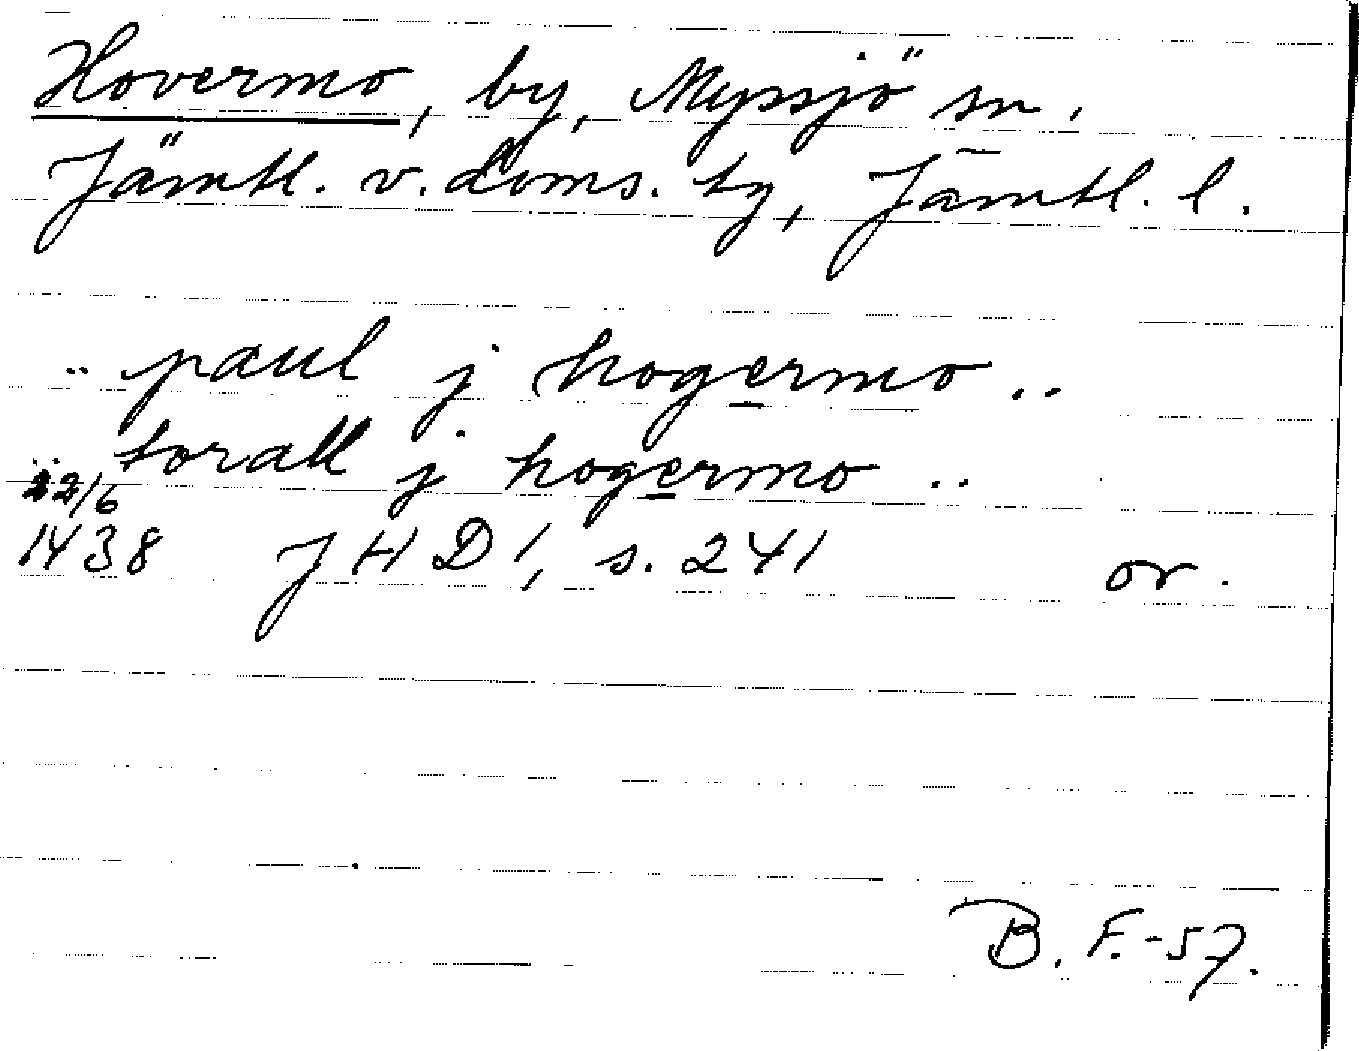 Hovermo, by, Myssjö sn.
Jämtl. v. doms. tg, Jämtl. l.
.. paul j hogermo ..
.. torall j hogermo ..
22/6
1438 JHD 1, s. 241 or.
B. F. -57.